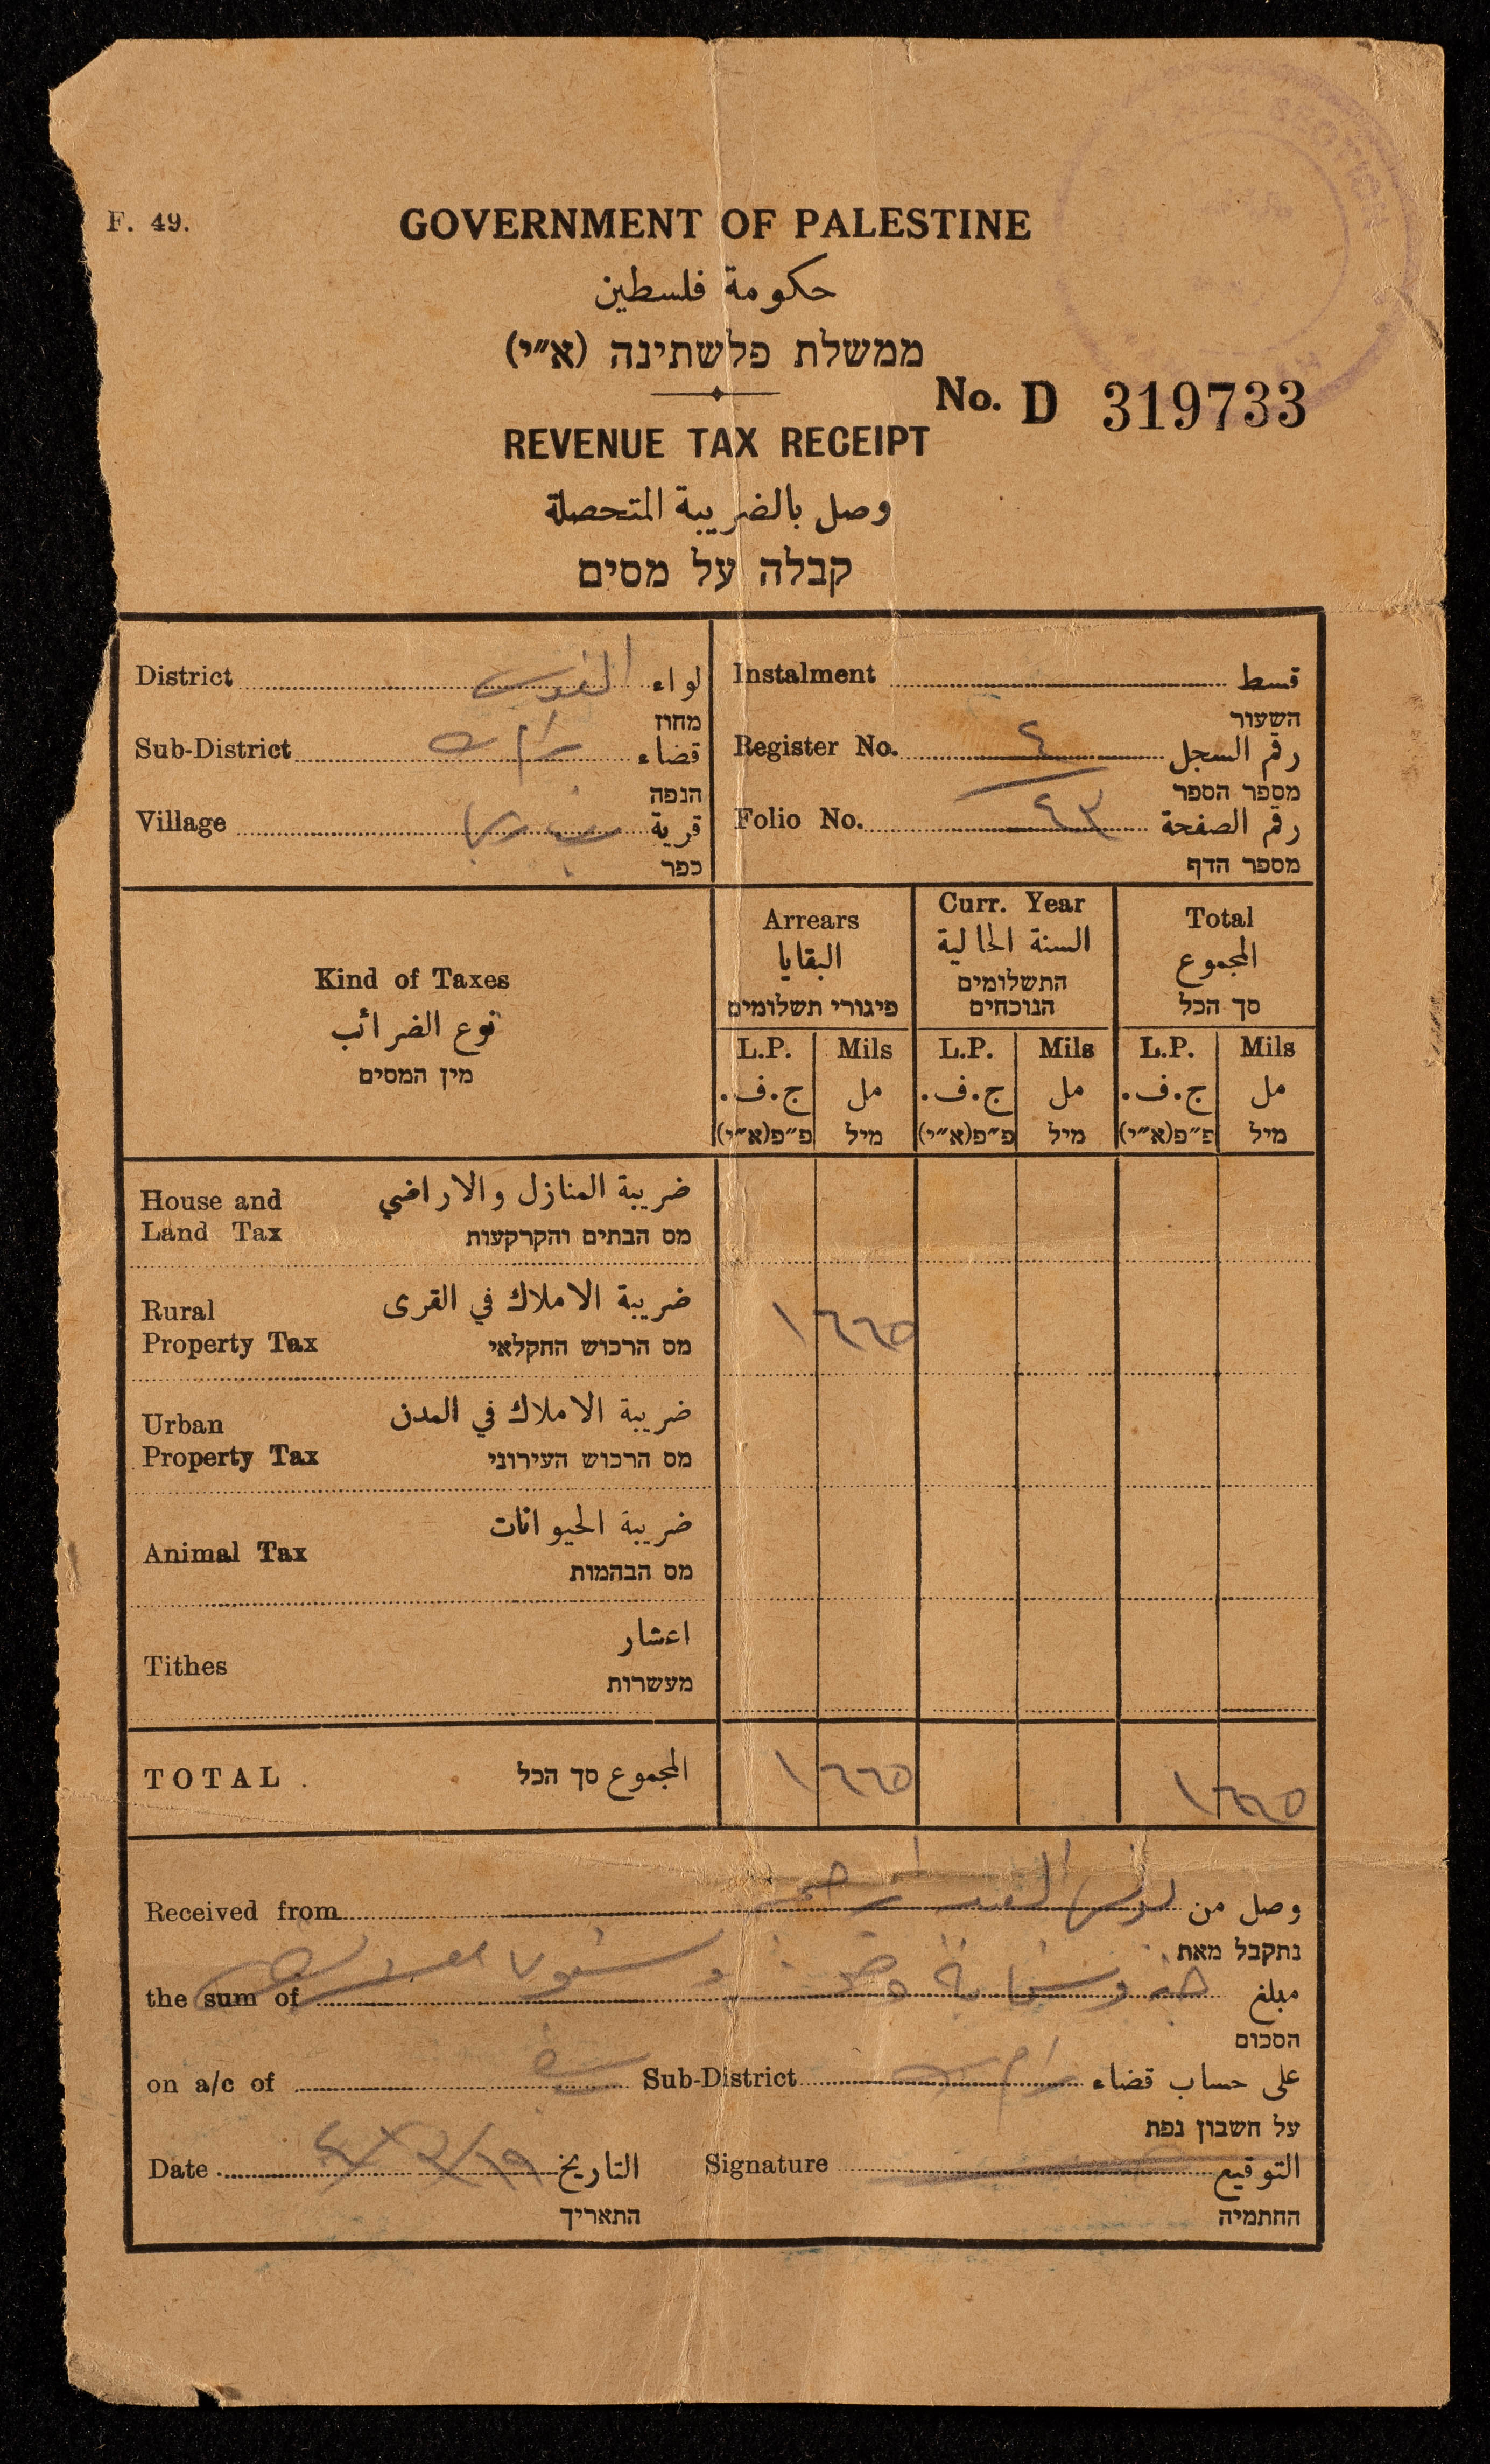 F. 49.
GOVERNMENT OF PALESTINE
حكومة فلسطين
ממשלת פלשתינה (א״י)
No. D 319733
REVENUE TAX RECEIPT
وصل بالضريبة المتحصلة
קבלה על מסים
District القدس لواء
מחוז
Sub-District رام الله قضاء
הנפה
Village قرية
כפר
Instalment قسط
השעור
Register No. ٤ رقم السجل
מספר הספר
Folio No. ٤٣ رقم الصفحة
מספר הדף
Kind of Taxes
نوع الضرائب
מין המסים
Arrears
البقايا
פיגורי תשלומים
Curr. Year
السنة الحالية
התשלומים
הנוכחים
Total
المجموع
סך הכל
L.P. Mils L.P. Mils L.P. Mils
ج.ف. مل ج.ف. مل ج.ف. مل
פ״פ(א״י) מיל פ״פ(א״י) מיל פ״פ(א״י) מיל
House and ضريبة المنازل والاراضي
Land Tax מס הבתים והקרקעות
Rural ضريبة الاملاك في القرى
Property Tax מס הרכוש החקלאי
١ ٦٦٥
Urban ضريبة الاملاك في المدن
Property Tax מס הרכוש העירוני
Animal Tax ضريبة الحيوانات
מס הבהמות
Tithes اعشار
מעשרות
TOTAL المجموع סך הכל ١ ٦٦٥ ١ ٦٦٥
Received from وصل من
נתקבל מאת
the sum of مبلغ
הסכום
on a/c of Sub-District رام الله على حساب قضاء
על חשבון נפת
Date التاريخ Signature التوقيع
התאריך החתמיה